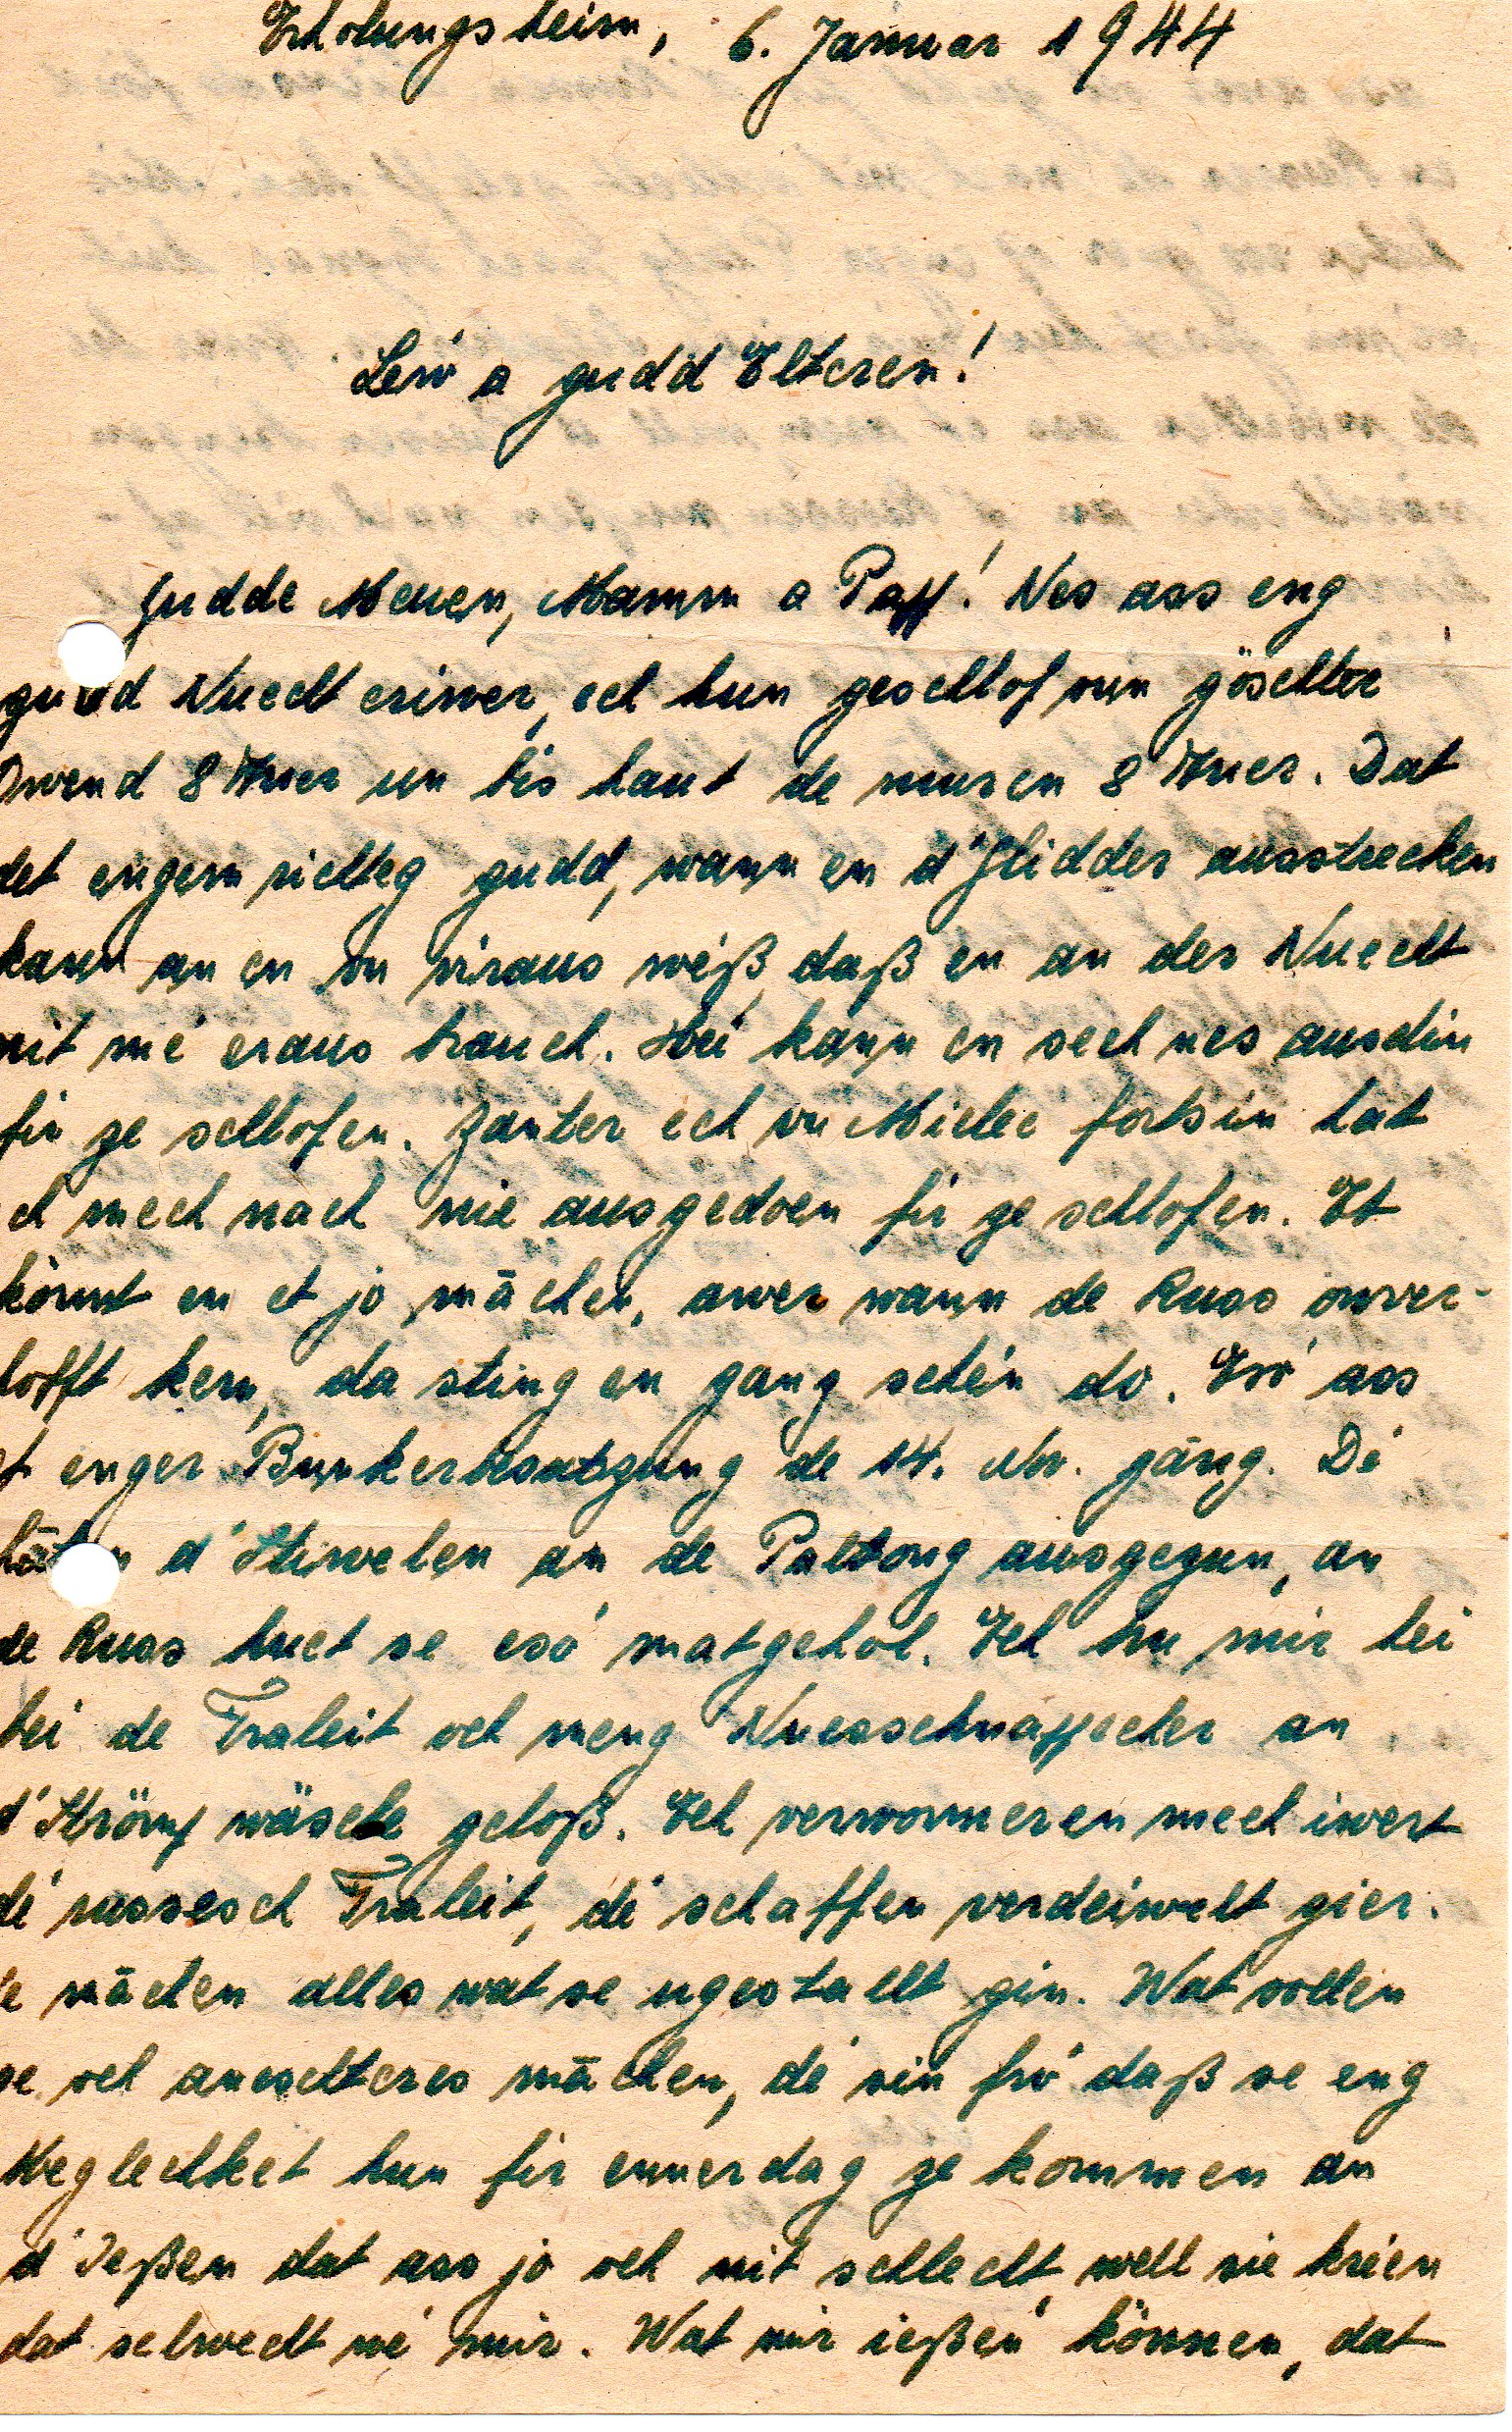 Erholungsheim, 6. Januar 1944
Lew a gudd Elteren!
Gudde Meuen, Mamm a Papp! Nes ass eng
gudd Nuecht eriwer, ech hun geschlof vun göschter
Owend 8 Auer un bis haut de muren 8 Auer. Dat
det engem richteg gudd, wann en d'Glidder ausstrecken
kann an en vu viraus wéß daß en an der Nuecht
nit mé eraus brauch. Hei kann en sech nes ausdin
fir ze schlofen. Zanter ech vu Mielec fortsin hat
ech mech nach nie ausgedoen fir ze schlofen. Et
könnt en et jo mächen, awer wann de Russ onver-
hofft kem, da sting en ganz schéin do. Esó ass
et enger Bunkerbesatzung de 14. Nr. gäng. Dé
häten d'Stiwelen an de Paltong ausgezun, an
de Russ huet se esó matgehol. Ech hu mir hei
bei de Fraleit och meng Nuesschnappecher an
d'Strömp wäsche geloß. Ech verwonneren mech iwert
dé russesch Fraleit, dé schaffen verdeiwelt gier.
Se mächen alles wat se ugestallt gin. Wat sollen
se och aneschteres mächen, dé sin fró daß se eng
Méglechket hun fir ennerdag ze kommen an
d'Ießen dat ass jo och nit schlecht well sie kréien
dat selwecht wé mir. Wat mir ießen können, dat